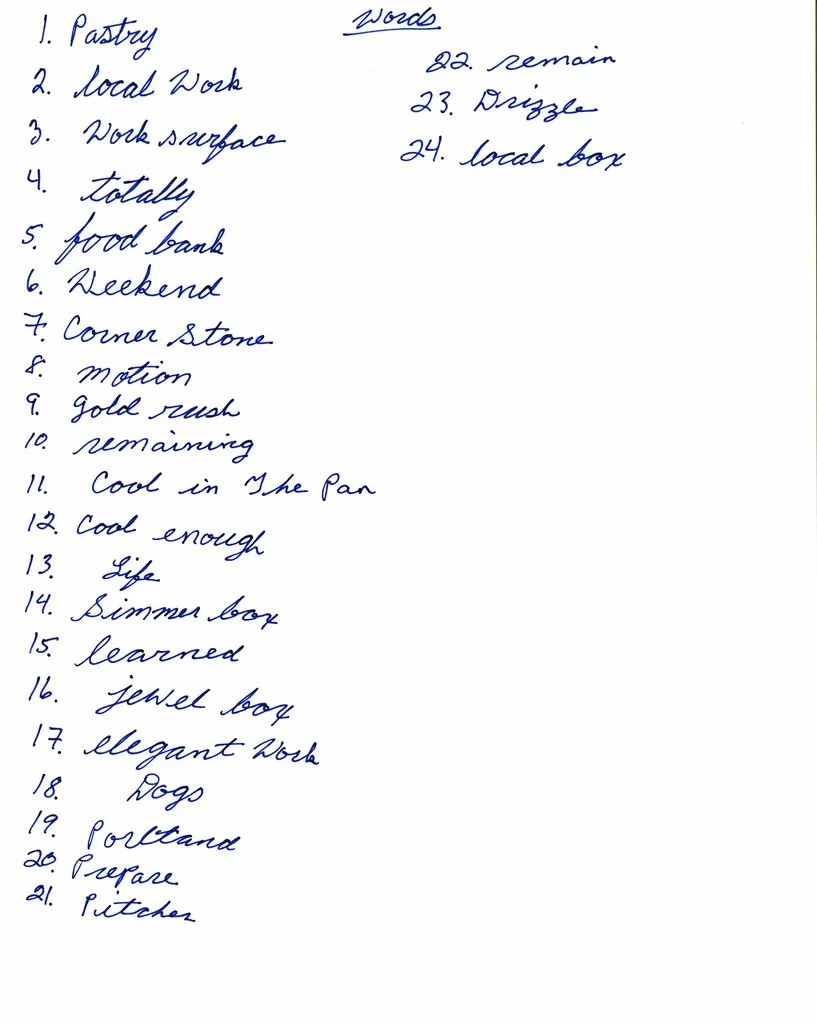 Words
1. Pastry
2. local Work
3. Work surface
4. totally
5. food bank
6. Weekend
7. Corner Stone
8. motion
9. gold rush
10. remaining
11. Cool in The Pan
12. Cool enough
13. Life
14. Simmer box
15. learned
16. jewel box
17. elegant Work
18. Dogs
19. Porltand
20. Prepare
21. Pitcher
22. remain
23. Drizzle
24. local box